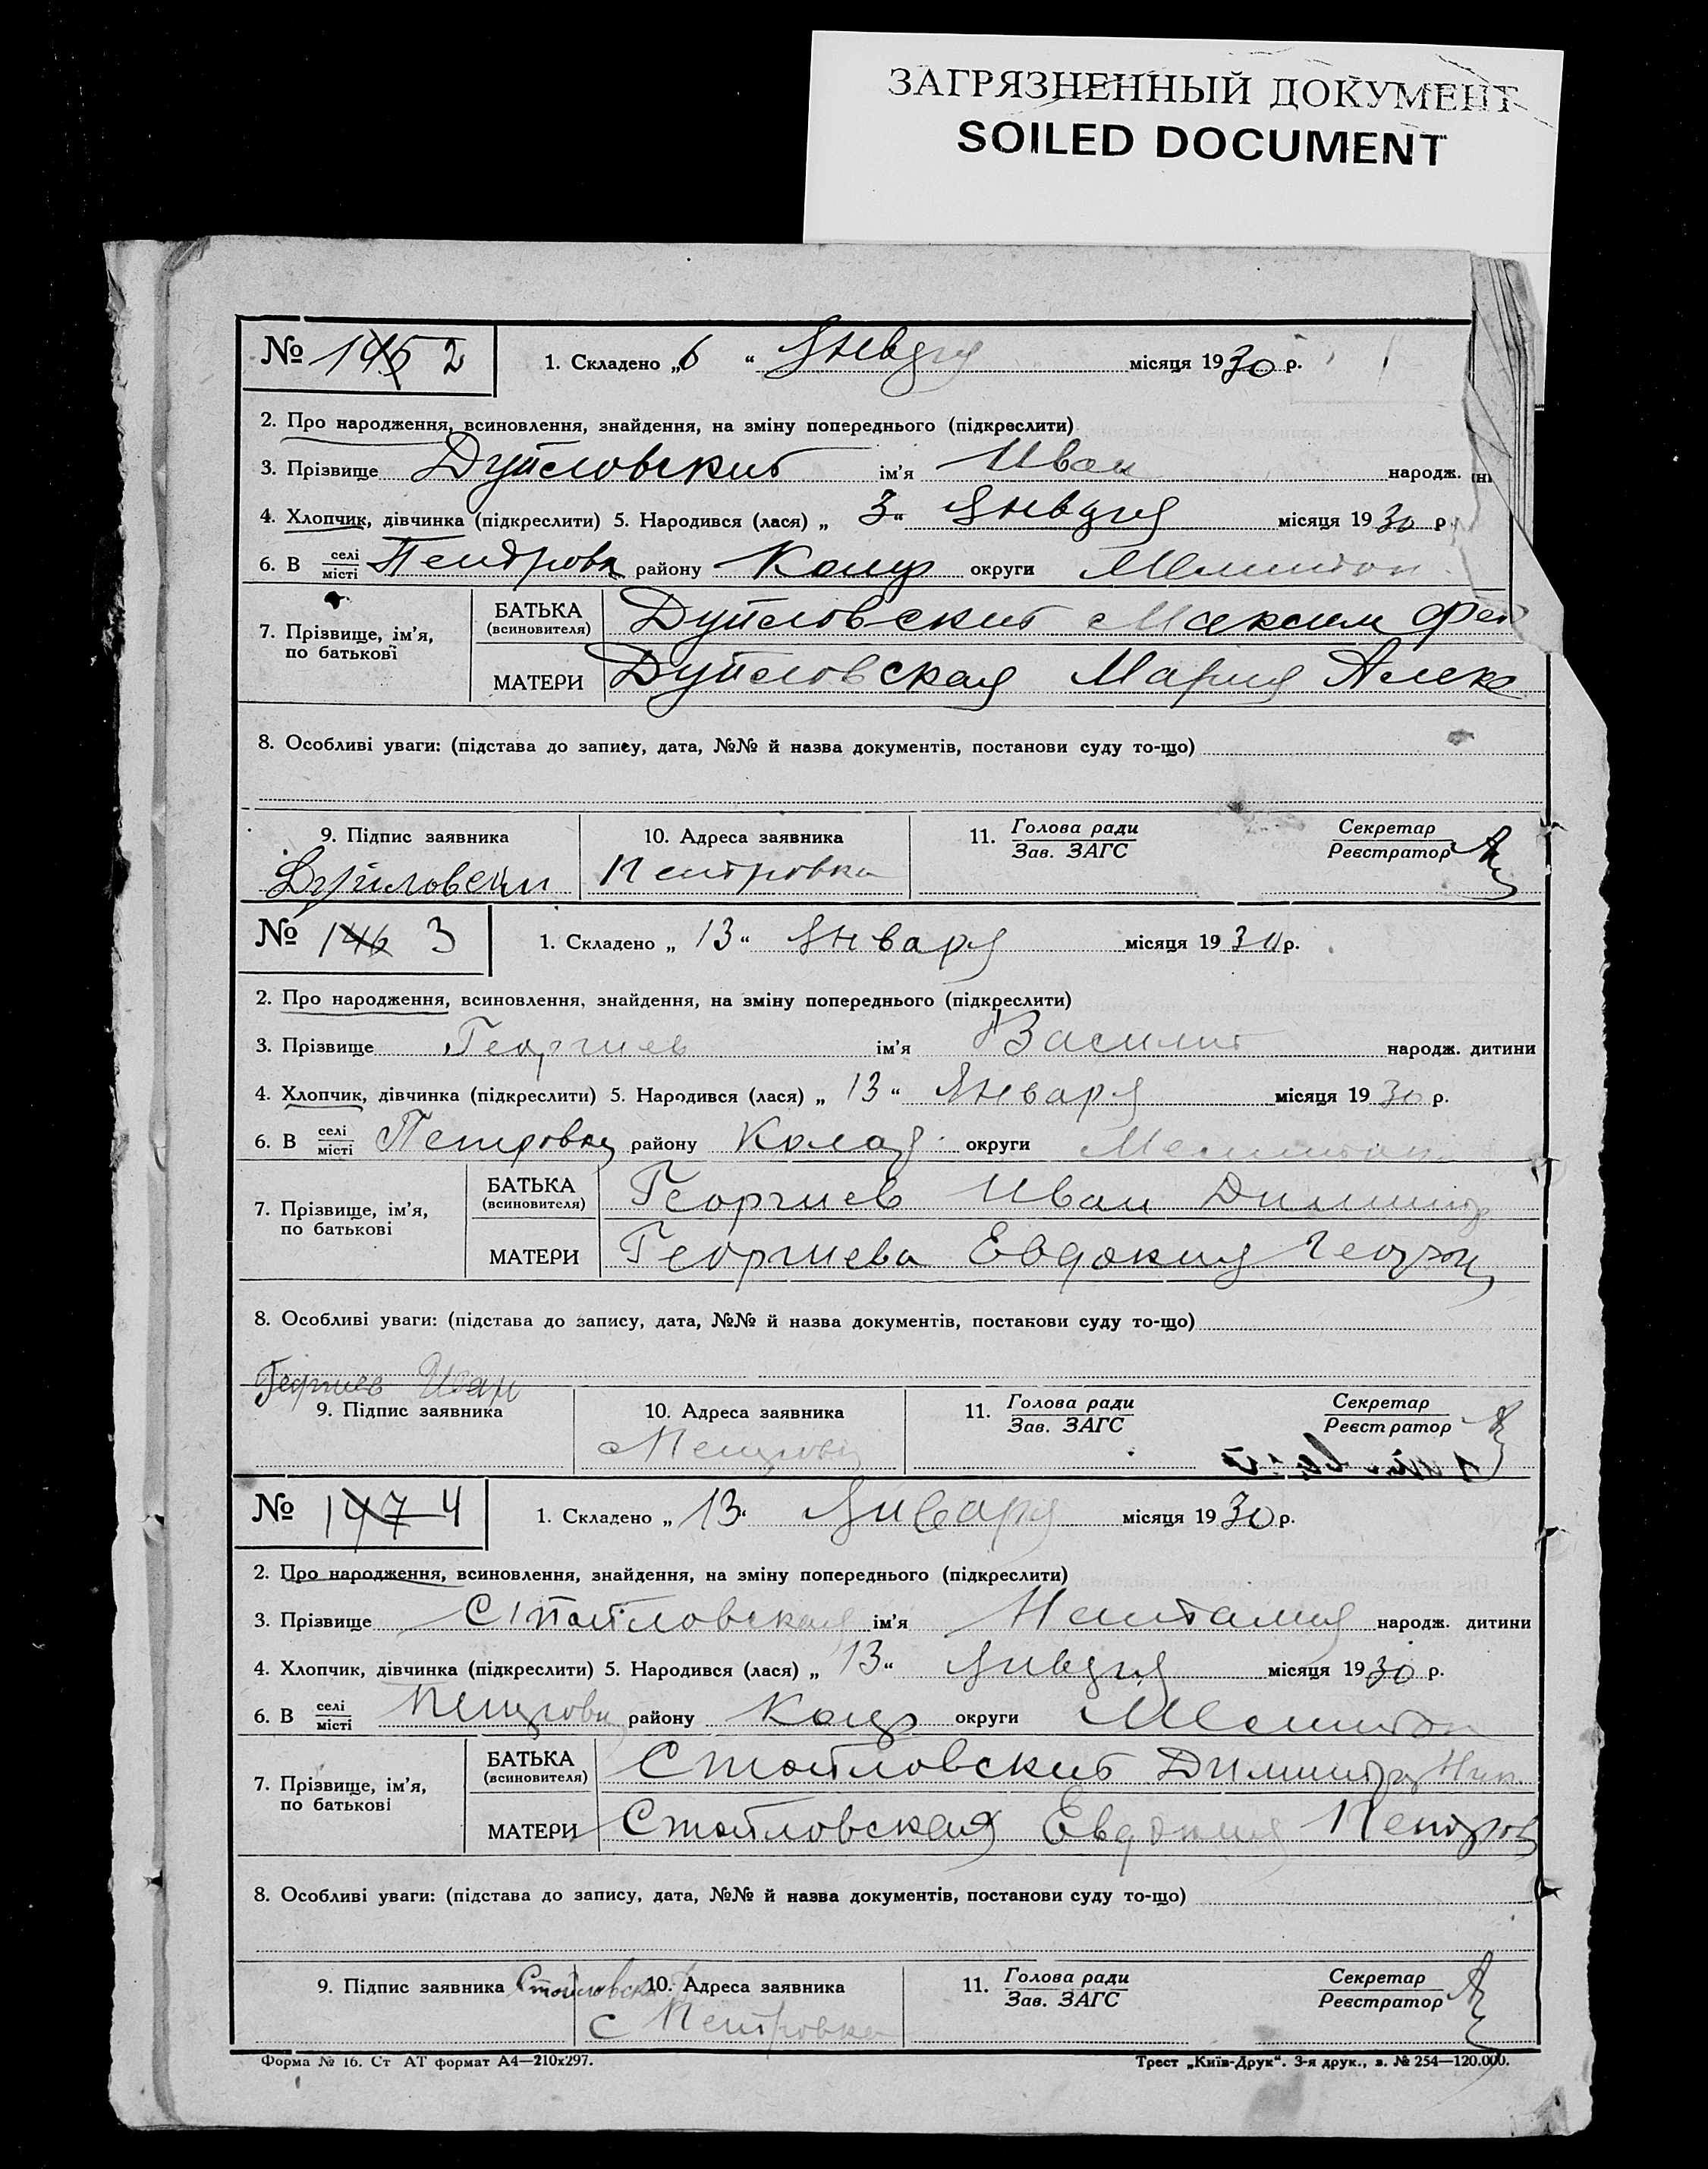 ЗАГРЯЗНЕННЫЙ ДОКУМЕНТ
SOILED DOCUMENT
№ 145 2 1. Складено „6“ января місяця 1930 р.
2. Про народження, всиновлення, знайдення, на зміну попереднього (підкреслити)
3. Прізвище ім'я Иван народж.
4. Хлопчик, дівчинка (підкреслити) 5. Народився (лася) „3“ января місяця 1930 р
6. В селі місті району округи
7. Прізвище, ім'я, по батькові
БАТЬКА (всиновителя) Максим
МАТЕРИ Мария Алекс
8. Особливі уваги: (підстава до запису, дата, №№ й назва документів, постанови суду то-що)
9. Підпис заявника 10. Адреса заявника 11. Голова ради Зав. ЗАГС Секретар Реєстратор
Петровка
№ 146 3 1. Складено „13“ января місяця 1930 р.
2. Про народження, всиновлення, знайдення, на зміну попереднього (підкреслити)
3. Прізвище Георгиев ім'я Василий народж. дитини
4. Хлопчик, дівчинка (підкреслити) 5. Народився (лася) „13“ января місяця 1930 р.
6. В селі місті Петровка району округи
7. Прізвище, ім'я, по батькові
БАТЬКА (всиновителя) Георгиев Иван
МАТЕРИ Георгиева Евдокия
8. Особливі уваги: (підстава до запису, дата, №№ й назва документів, постанови суду то-що)
Георгиев Иван
9. Підпис заявника 10. Адреса заявника 11. Голова ради Зав. ЗАГС Секретар Реєстратор
№ 147 4 1. Складено „13“ января місяця 1930 р.
2. Про народження, всиновлення, знайдення, на зміну попереднього (підкреслити)
3. Прізвище Стойловская ім'я Наталия народж. дитини
4. Хлопчик, дівчинка (підкреслити) 5. Народився (лася) „13“ января місяця 1930 р.
6. В селі місті району округи
7. Прізвище, ім'я, по батькові
БАТЬКА (всиновителя) Стойловский Ник.
МАТЕРИ Стойловская Евдокия Петров
8. Особливі уваги: (підстава до запису, дата, №№ й назва документів, постанови суду то-що)
9. Підпис заявника 10. Адреса заявника 11. Голова ради Зав. ЗАГС Секретар Реєстратор
с Петровка
Форма № 16. Ст АТ формат А4—210х297. Трест „Київ-Друк“. 3-я друк., з. № 254—120.000.